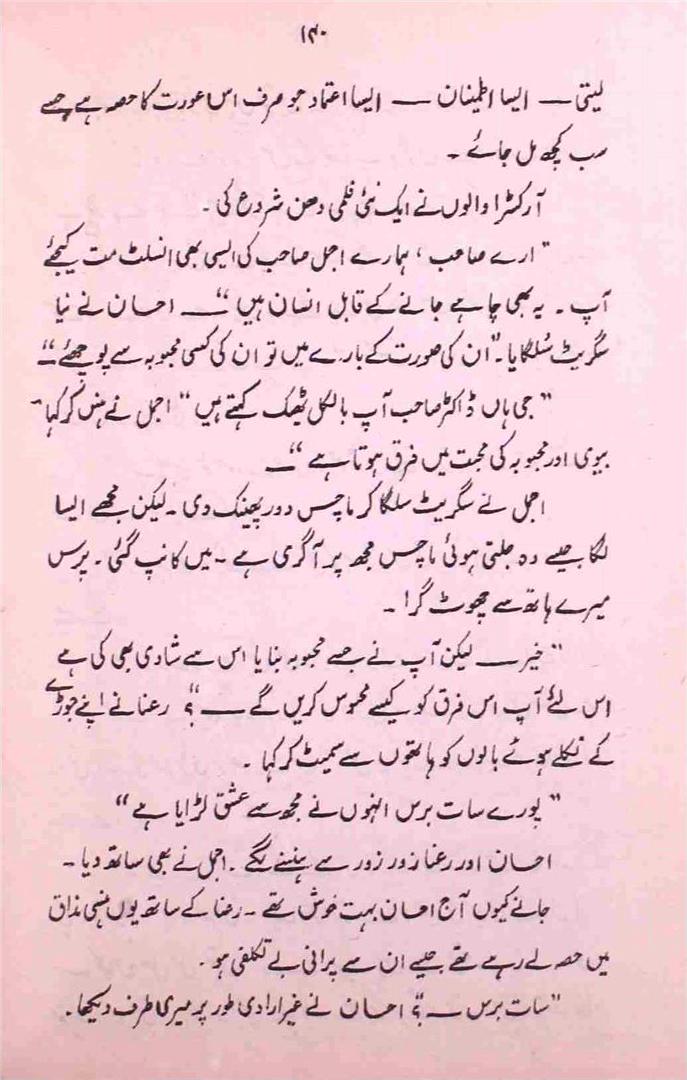 ۱۴۰
لیتی — ایسا اطمینان — ایسا اعتماد جو صرف اس عورت کا حصہ ہے جسے
سب کچھ مل جائے ۔
آرکسٹرا والوں نے ایک نئی فلمی دھن شروع کی ۔
"ارے صاحب ، ہمارے اجمل صاحب کی ایسی بھی انسلٹ مت کیجئے
آپ ۔ یہ بھی چاہے جانے کے قابل انسان ہیں" — احسان نے نیا
سگریٹ سُلگایا ۔ "ان کی صورت کے بارے میں تو ان کی کسی محبوبہ سے پوچھئے" —
"جی ہاں ڈاکٹر صاحب آپ بالکل ٹھیک کہتے ہیں" اجمل نے ہنس کر کہا ۔
بیوی اور محبوبہ کی محبت میں فرق ہوتا ہے" —
اجمل نے سگریٹ سلگا کر ماچس دور پھینک دی ۔ لیکن مجھے ایسا
لگا جیسے وہ جلتی ہوئی ماچس مجھ پر آگری ہے ۔ میں کانپ گئی ۔ پرس
میرے ہاتھ سے چھوٹ گرا ۔
"خیر — لیکن آپ نے جسے محبوبہ بنایا اس سے شادی بھی کی ہے
اس لئے آپ اس فرق کو کیسے محسوس کریں گے — ؟" رعنا نے اپنے جوڑے
کے نکلے ہوئے بالوں کو ہاتھوں سے سمیٹ کر کہا ۔
"پورے سات برس انہوں نے مجھ سے عشق لڑایا ہے"
احسان اور رعنا زور زور سے ہنسنے لگے ۔ اجمل نے بھی ساتھ دیا ۔
جانے کیوں آج احسان بہت خوش تھے ۔ رعنا کے ساتھ یوں ہنسی مذاق
میں حصہ لے رہے تھے جیسے ان سے پرانی بے تکلفی ہو ۔
"سات برس — ؟" احسان نے غیر ارادی طور پر میری طرف دیکھا ۔